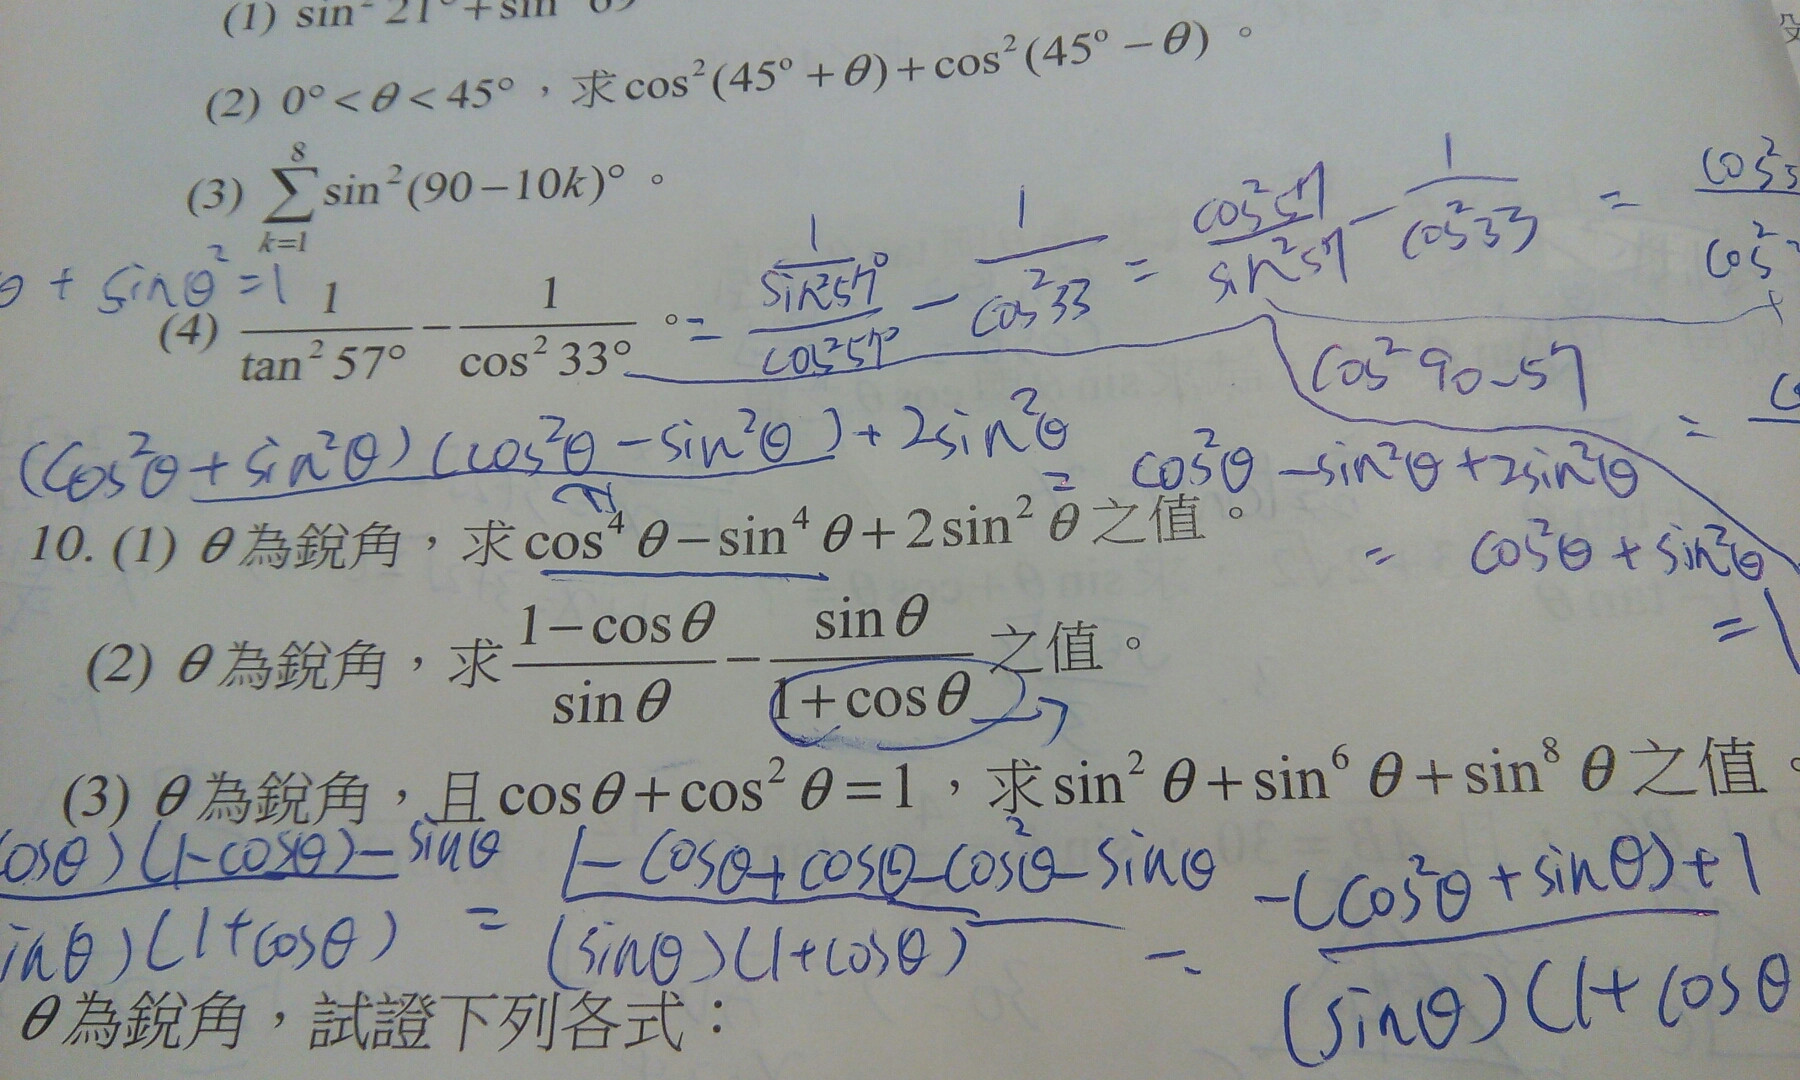 (1) sin² 21° + sin
(2) 0° < θ < 45°，求 cos² (45° + θ) + cos² (45° − θ)。
(3) ∑_{k=1}^{8} sin² (90 − 10k)°。
θ + sinθ² = 1
(4) 1/tan² 57° − 1/cos² 33°。 = 1/(sin²57°/cos²57°) − 1/cos²33 = cos²57/sin²57 − 1/cos²33 =
cos² 90-57
(cos²θ + sin²θ)(cos²θ − sin²θ) + 2sin²θ = cos²θ − sin²θ + 2sin²θ
10. (1) θ為銳角，求 cos⁴ θ − sin⁴ θ + 2 sin² θ 之值。 = cos²θ + sin²θ
= 1
(2) θ為銳角，求 (1 − cos θ)/sin θ − sin θ/(1 + cos θ) 之值。
(3) θ為銳角，且 cos θ + cos² θ = 1，求 sin² θ + sin⁶ θ + sin⁸ θ 之值。
(osθ)(1-cosθ) − sinθ / inθ)(1+cosθ) = 1 − cosθ + cosθ − cos²θ − sinθ / (sinθ)(1+cosθ) = −(cos²θ + sinθ) + 1 / (sinθ)(1+cosθ
θ為銳角，試證下列各式：